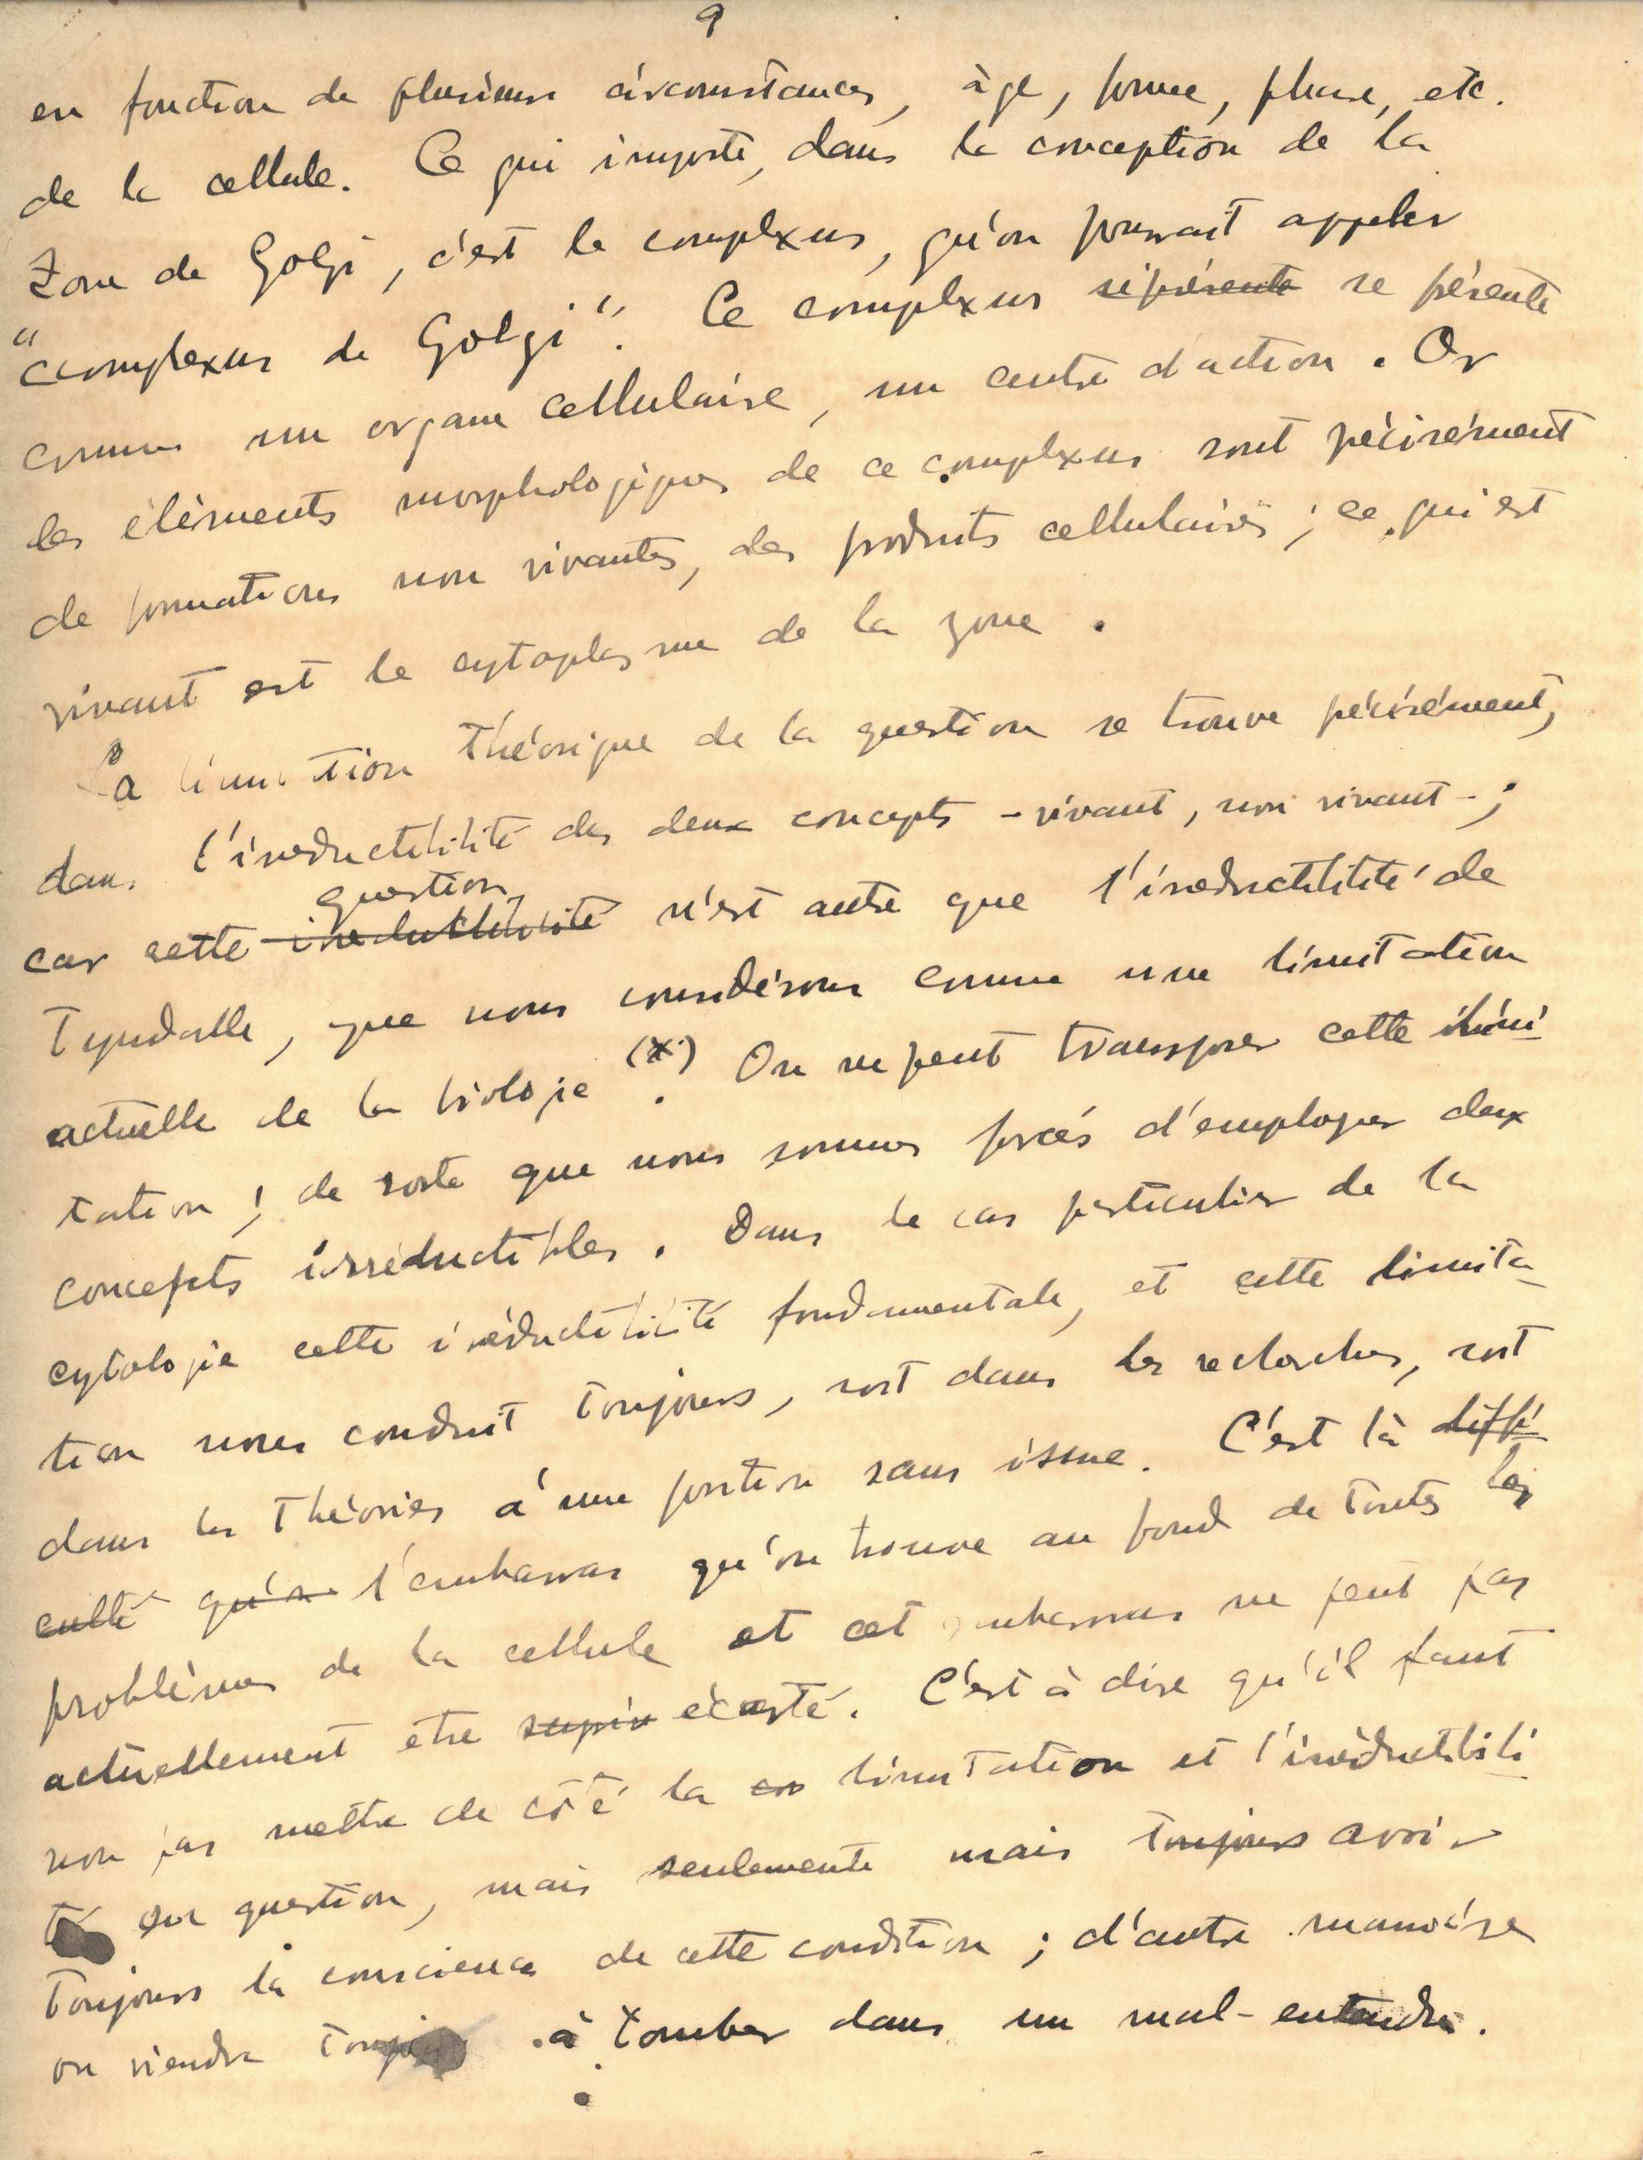 9
en fonction de plusieurs circonstances, âge, forme, phase, etc.
de la cellule. Ce qui importe, dans la conception de la
Zone de Golgi, c'est le complexus, qu'on pourrait appeler
"complexus de Golgi". Ce complexus réprésente se présente
comme un organe cellulaire, un centre d'action. Or
les éléments morphologiques de ce complexus sont précisément
de formations non vivantes, des produits cellulaires ; ce qui est
vivant est le cytoplasme de la zone.
La limitation théorique de la question se trouve précisément,
dans l'iréductibilité des deux concepts - vivant, non vivant - ;
question
car cette iréductibilité n'est autre que l'iréductibilité de
Tyndalle, que nous considérons comme une limitation
actuelle de la biologie (x). On ne peut transposer cette limi
tation ; de sorte que nous sommes forcés d'employer deux
concepts irréductibles. Dans le cas particulier de la
cytologie cette iréductibilité fondamentale, et cette limita
tion nous conduit toujours, soit dans les recherches, soit
dans les théories à une position sans issue. C'est là diffi
culté qu'on l'embarras qu'on trouve au fond de toutes les
problèmes de la cellule et cet embarras ne peut pas
actuellement etre écarté. C'est à dire qu'il faut
non pas mettre de côté la limitation et l'iréductibili
té en question, mais seulemente mais toujours avoir
Toujours la conscience de cette condition ; d'autre manière
on viendra à tomber dans un mal-entendu.